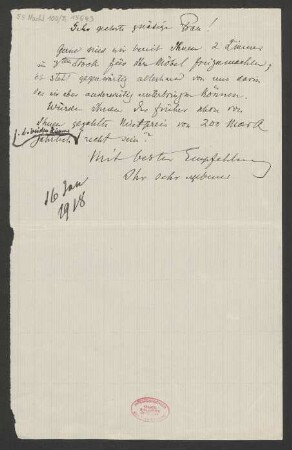 Sehr geehrte gnädige Frau!
Ganz sind wir bereit Ihnen 2 Zimmer
im IIIten Stock für den Möbel freizumachen;
es steht gegenwärtig allerhand von uns darin
das wir aber anderweitig unterbringen können.
Würde Ihnen der früher schon von
Ihnen gezahlte Mietpreis von 200 Mark
f. die beiden Zimmer
jährlich recht sein?
Mit besten Empfehlungen
Ihr sehr ergebener
16 Jan
1918